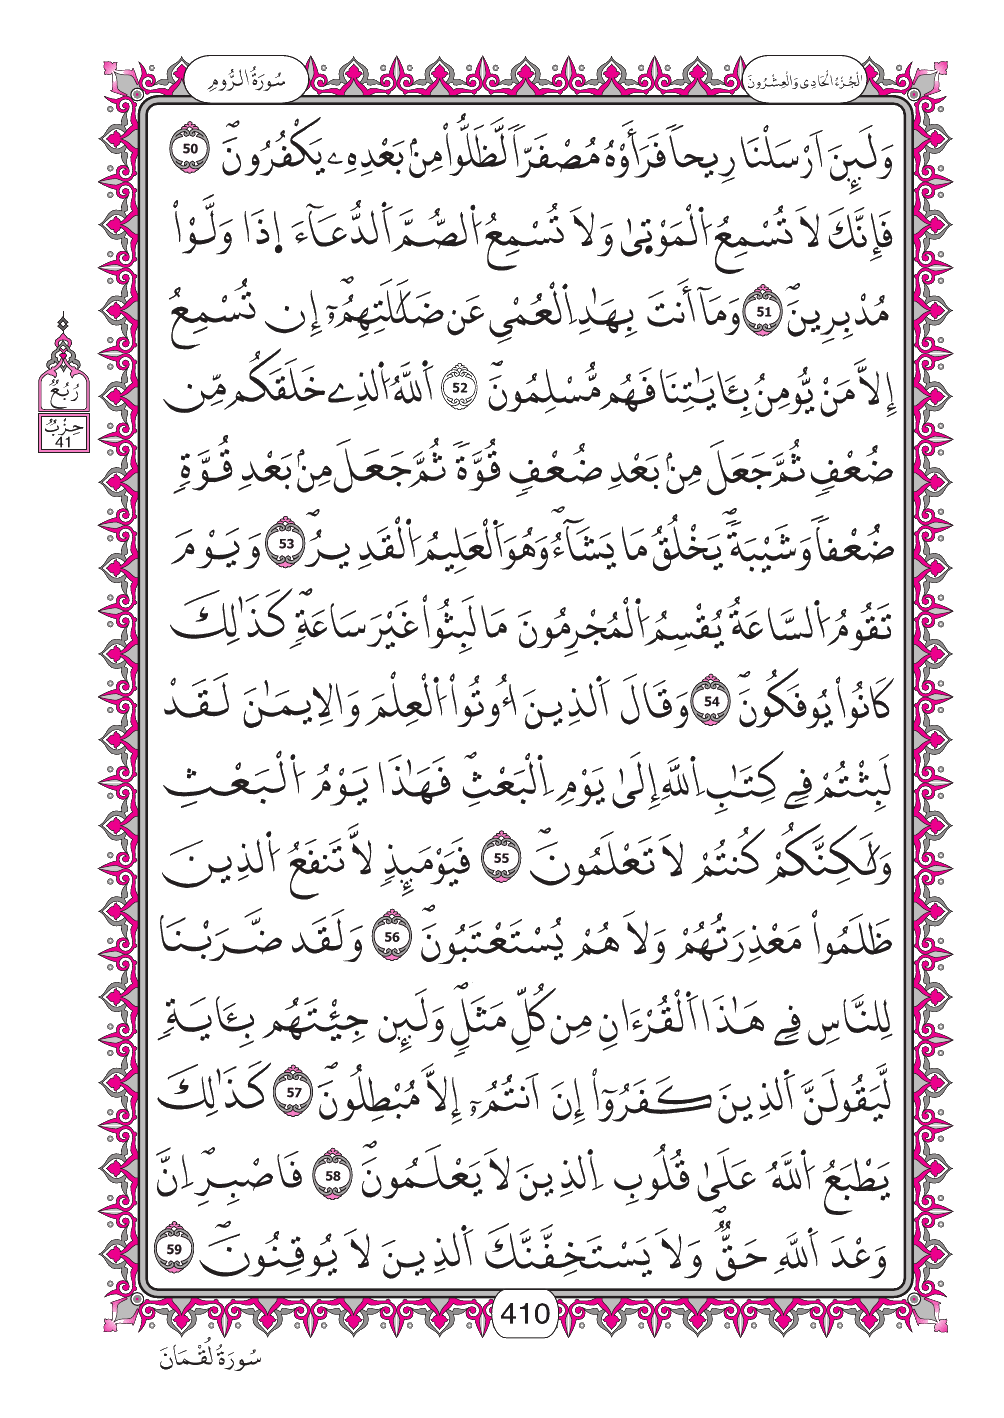 سُورَةُ الرُّومِ
الْجُزْءُ الْحَادِي وَالْعِشْرُونَ
وَلَئِنَ اَرْسَلْنَا رِيحاً فَرَأَوْهُ مُصْفَرّاً لَّظَلُّواْ مِنۢ بَعْدِهِۦ يَكْفُرُونَۖ 50
فَإِنَّكَ لَا تُسْمِعُ اُ۬لْمَوْت۪يٰ وَلَا تُسْمِعُ اُ۬لصُّمَّ اَ۬لدُّعَآءَ اِ۪ذَا وَلَّوْاْ
مُدْبِرِينَۖ 51 وَمَآ أَنتَ بِهَٰدِ اِ۬لْعُمْيِ عَن ضَلَٰلَتِهِمُۥٓۖ إِن تُسْمِعُ
إِلَّا مَنْ يُّومِنُ بِـَٔايَٰتِنَا فَهُم مُّسْلِمُونَۖ 52 اَ۬للَّهُ اُ۬لذِے خَلَقَكُم مِّن
رُبُعُ
حِزْبُ
41
ضُعْفٖ ثُمَّ جَعَلَ مِنۢ بَعْدِ ضُعْفٖ قُوَّةٗ ثُمَّ جَعَلَ مِنۢ بَعْدِ قُوَّةٖ
ضُعْفاً وَشَيْبَةٗۖ يَخْلُقُ مَا يَشَآءُۖ وَهُوَ اَ۬لْعَلِيمُ اُ۬لْقَدِيرُۖ 53 وَيَوْمَ
تَقُومُ اُ۬لسَّاعَةُ يُقْسِمُ اُ۬لْمُجْرِمُونَ مَا لَبِثُواْ غَيْرَ سَاعَةٖۖ كَذَٰلِكَ
كَانُواْ يُوفَكُونَۖ 54 وَقَالَ اَ۬لذِينَ أُوتُواْ اُ۬لْعِلْمَ وَالِايمَٰنَ لَقَدْ
لَبِثْتُمْ فِے كِتَٰبِ اِ۬للَّهِ إِلَىٰ يَوْمِ اِ۬لْبَعْثِۖ فَهَٰذَا يَوْمُ اُ۬لْبَعْثِ
وَلَٰكِنَّكُمْ كُنتُمْ لَا تَعْلَمُونَۖ 55 فَيَوْمَئِذٖ لَّا تَنفَعُ اُ۬لذِينَ
ظَلَمُواْ مَعْذِرَتُهُمْ وَلَا هُمْ يُسْتَعْتَبُونَۖ 56 وَلَقَد ضَّرَبْنَا
لِلنَّاسِ فِے هَٰذَا اَ۬لْقُرْءَانِ مِن كُلِّ مَثَلٖۖ وَلَئِن جِئْتَهُم بِـَٔايَةٖ
لَّيَقُولَنَّ اَ۬لذِينَ كَفَرُوٓاْ إِنَ اَنتُمُۥٓ إِلَّا مُبْطِلُونَۖ 57 كَذَٰلِكَ
يَطْبَعُ اُ۬للَّهُ عَلَىٰ قُلُوبِ اِ۬لذِينَ لَا يَعْلَمُونَۖ 58 فَاصْبِرِۖ اِنَّ
وَعْدَ اَ۬للَّهِ حَقّٞۖ وَلَا يَسْتَخِفَّنَّكَ اَ۬لذِينَ لَا يُوقِنُونَۖ 59
410
سُورَةُ لُقْمَانَ